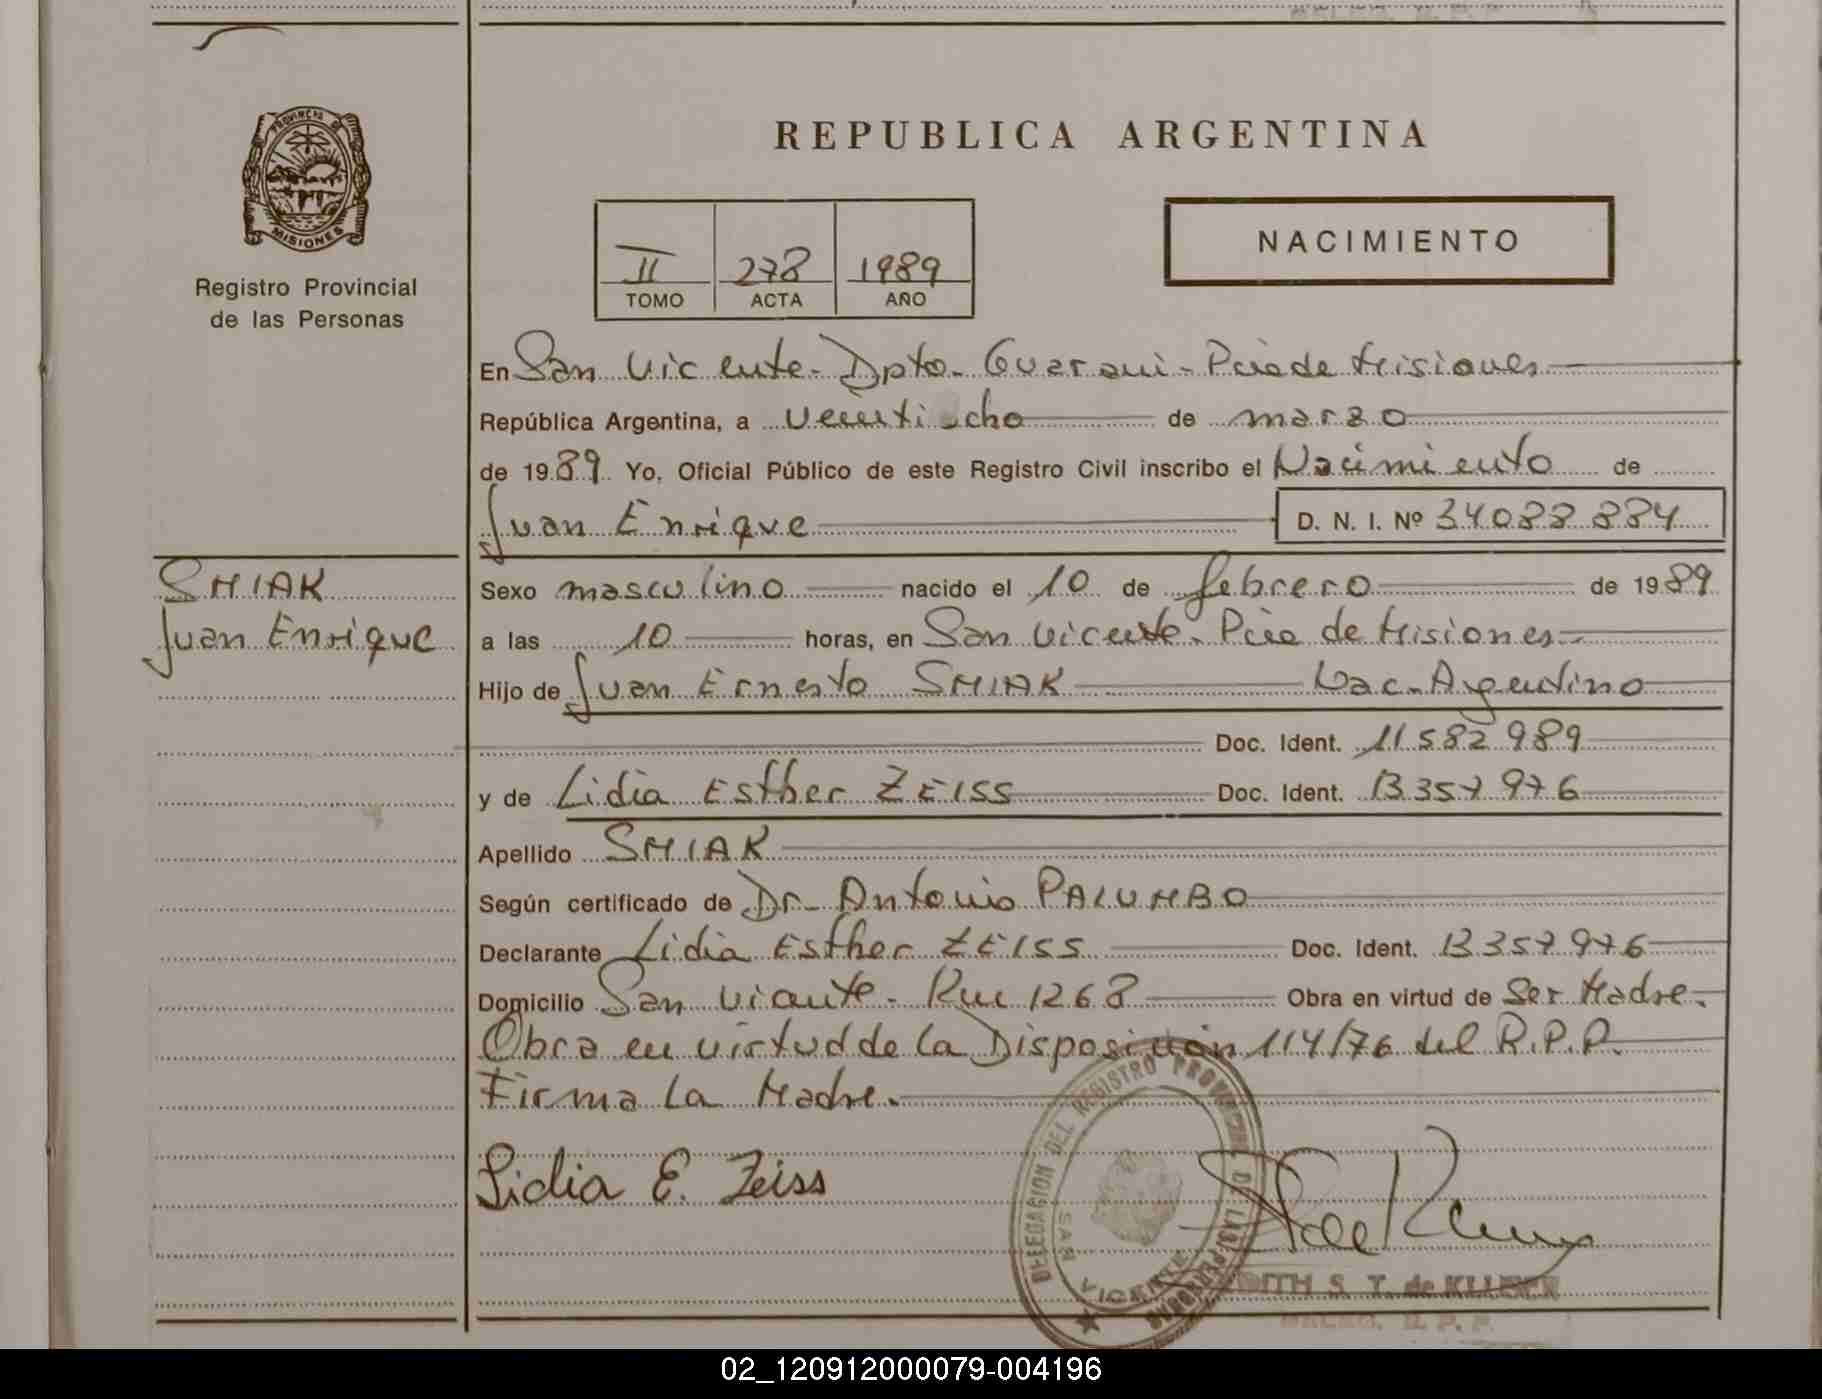 PROVINCIA DE
MISIONES
Registro Provincial
de las Personas
REPUBLICA ARGENTINA
II 278 1989
TOMO ACTA AÑO
NACIMIENTO
En San Vicente - Dpto - Guarani - Pcia de Misiones
República Argentina, a veintiocho de marzo
de 1989. Yo, Oficial Público de este Registro Civil inscribo el Nacimiento de
Juan Enrique D. N. I. Nº 34088884
SMIAK
Juan Enrique
Sexo masculino nacido el 10 de febrero de 1989
a las 10 horas, en San Vicente - Pcia de Misiones
Hijo de Juan Ernesto SMIAK Nac- Argentino
Doc. Ident. 11582989
y de Lidia Esther ZEISS Doc. Ident. 13357976
Apellido SMIAK
Según certificado de Dr- Antonio PALUMBO
Declarante Lidia Esther ZEISS Doc. Ident. 13357976
Domicilio San Vicente - Km 1268 Obra en virtud de Ser Madre.
Obra en virtud de la Disposición 114/76 del R.P.P.
Firma la Madre.
Lidia E. Zeiss
DELEGACION DEL REGISTRO PROVINCIAL DE LAS PERSONAS
SAN VICENTE
S. T. de
R. P. P.
02_120912000079-004196